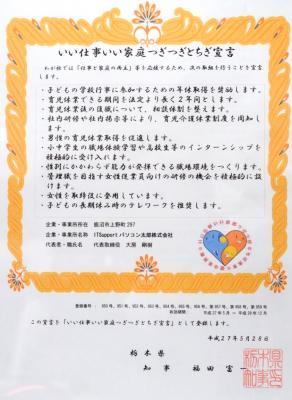 いい仕事いい家庭つぎつぎとちぎ宣言
わが社では「仕事と家庭の両立」等を応援するため、次の取組を行うことを宣言
します。
・子どもの学校行事に参加するための年休取得を奨励します。
・育児休業できる期間を法定より長く2年間とします。
・育児休業後の復職について、相談体制を整えます。
・社内研修や社内掲示等により、育児介護休業制度を周知し
ます。
・男性の育児休業取得を促進します。
・小中学生の職場体験学習や高校生等のインターンシップを
積極的に受け入れます。
・性別にかかわらず能力が発揮できる職場環境をつくります。
・管理職を目指す女性従業員向けの研修の機会を積極的に設
けます。
・女性を取締役に登用しています。
・子どもの長期休み時のテレワークを推奨します。
企業・事業所所在
企業・事業所名称 ITSupport パソコン太郎株式会社
代表者・職氏名 代表取締役 大房
登録番号
有効期間
この宣言を「いい仕事いい家庭つぎつぎとちぎ宣言」として登録します。
平成27年5月28日
栃木県
知事 福田 富一